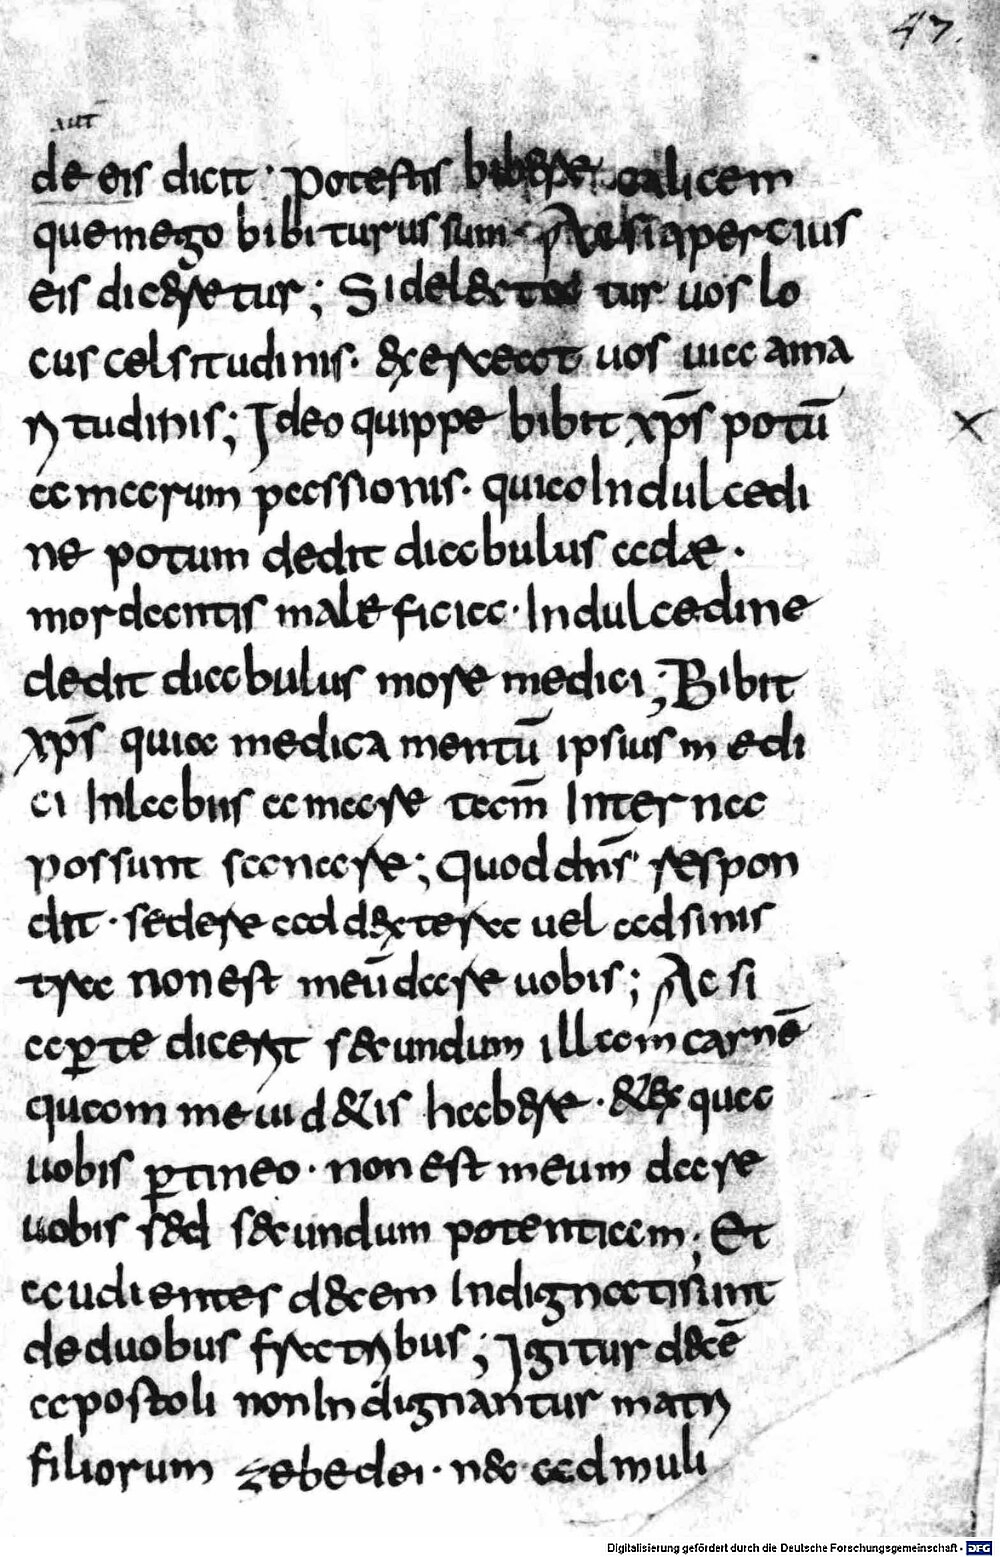 47.
aut̄
de eis dicit · potestis bibere calicem
quem ego bibiturus sum · Ac si apercius
eis diceretur ; Si delectat uos lo
cus celsitudinis · exerceat uos uia ama
ritudinis ; Ideo quippe bibit xp̄s potū
amarum passionis · quia In dulcedi
ne potum dedit diabulus adæ ·
mordentis male ficia · In dulcedine
dedit diabulus more medici ; Bibit
xp̄s quia medica mentū ipsius medi
ci In labiis amare tam̄ Interna
possunt sanare ; Quod dn̄s respon
dit · sedere ad dextera uel ad sinis
tra non est meū dare uobis ; Ac si
aꝑte dicerit secundum illam carnē
quam me uidetis habere ·  qua
uobis ꝑtineo · non est meum dare
uobis sed secundum potentiam ; Et
audientes decem Indignati sunt
de duobus fratribus ; Igitur decē
apostoli non Indignantur matri
filiorum zebedei · nec ad muli
Digitalisierung gefördert durch die Deutsche Forschungsgemeinschaft - DFG